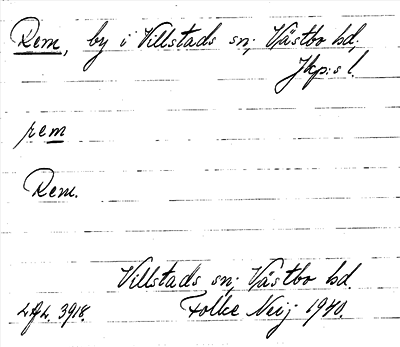 Rem, by i Villstads sn; Västbo hd,
Jkp:s l.
rem
Rem.
Villstads sn; Västbo hd.
Folke Neij 1940.
LAL. 3918.